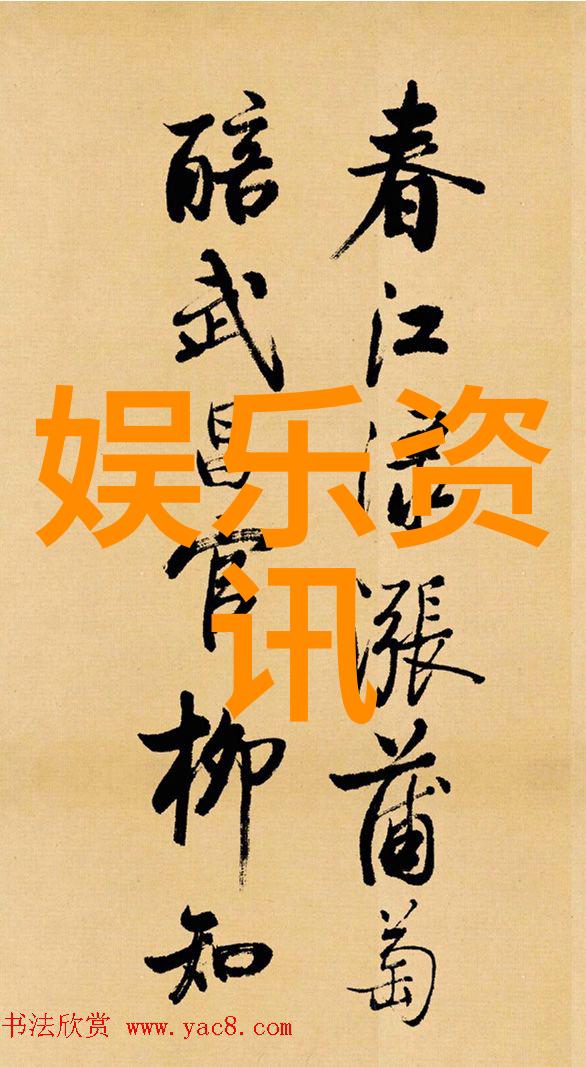 春江渌漲蒲萄
醅武昌官柳知
娱乐资
讯
书法欣赏 www.yac8.com